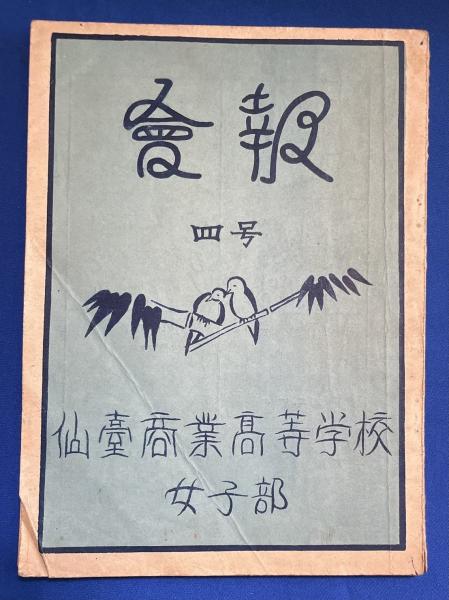 會報
四号
仙臺商業高等学校
女子部